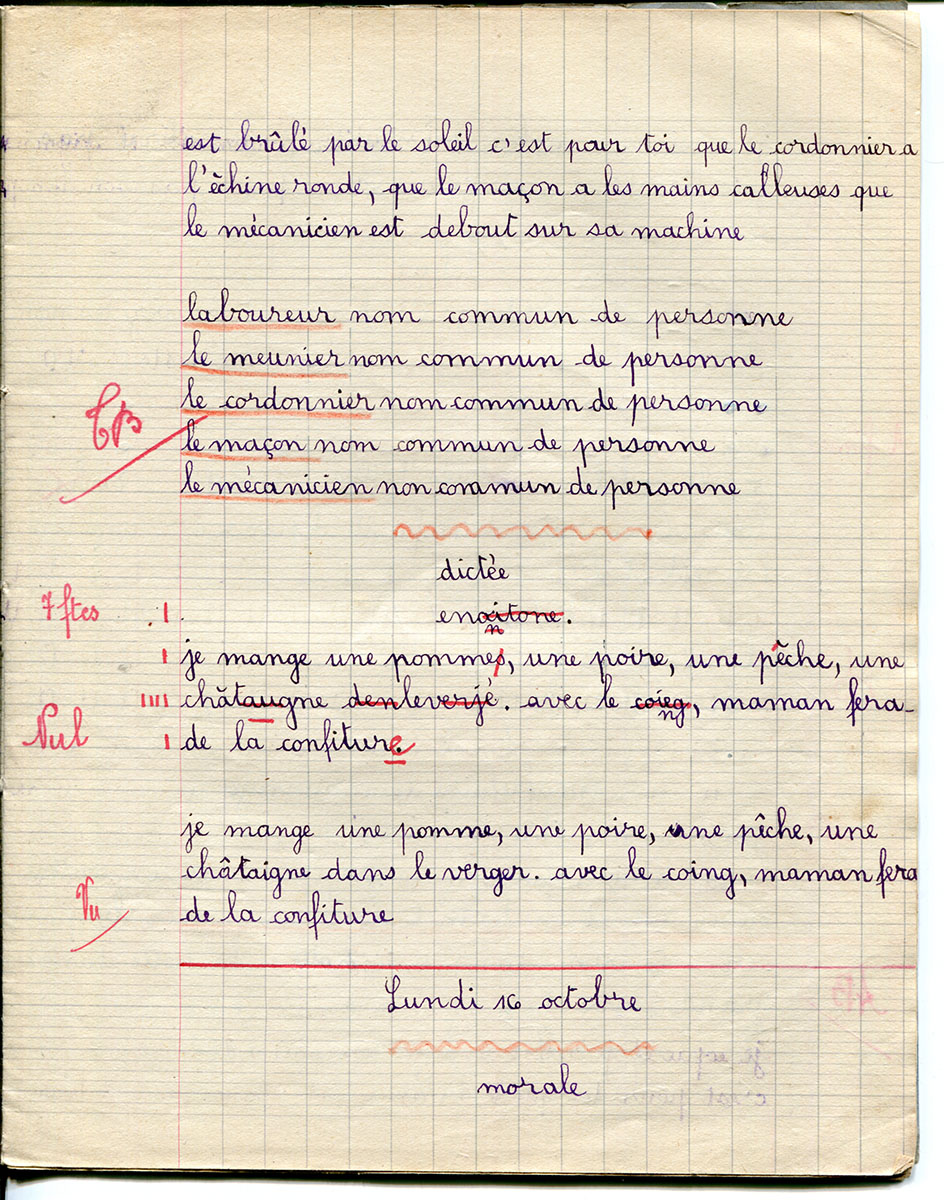 est brûlé par le soleil c'est pour toi que le cordonnier a
l'échine ronde, que le maçon a les mains calleuses que
le mécanicien est debout sur sa machine
laboureur nom commun de personne
le meunier nom commun de personne
le cordonnier nom commun de personne
TB
le maçon nom commun de personne
le mécanicien non commun de personne
dictée
7 ftes
je mange une pommes, une poire, une pêche, une
châtaugne denleverjé. avec le, maman fera
Nul
de la confiture
je mange une pomme, une poire, une pêche, une
châtaigne dans le verger. avec le coing, maman fera
Vu
de la confiture
Lundi 16 octobre
morale